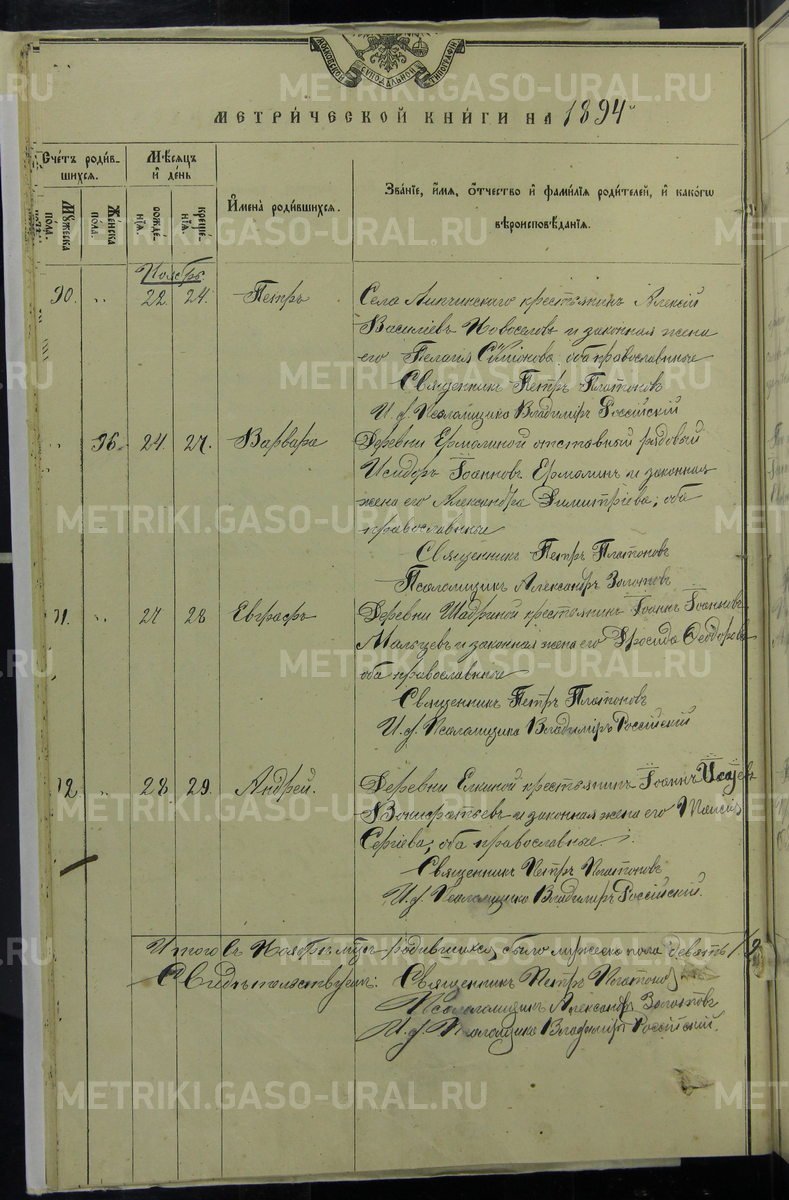 МОСКОВСКОЙ СѴНОДАЛЬНОЙ ТИПОГРАФІИ
МЕТРИ́ЧЕСКОЙ КНИ́ГИ НА 1894
Сче́тъ роди́в-
шихся.
Мѣсяцъ
и҆ де́нь
И҆мена̀ роди́вшихся.
Зва́нїе, и҆́мѧ, ѻ҆́тчество и҆ фами́лїѧ роди́телей, и҆ како́гѡ
вѣроисповѣ́данїѧ.
Му́жеска по́ла.
Же́нска по́ла.
рожде́нїѧ.
креще́нїѧ.
Ноябрь
30. „ 22 24. Петръ
Села Липчинскаго крестьянинъ Алексій
Василіевъ Новоселовъ и законная жена
его Пелагія Симіонова, оба православные
Священникъ Петръ Платоновъ
И. д. Псаломщика Владиміръ Россійскій
„ 36. 24. 27. Варвара
Деревни Ермолиной отставный рядовый
Исидоръ Іоанновъ Ермолинъ и законная
жена его Александра Димитріева, оба
православные
Священникъ Петръ Платоновъ
Псаломщикъ Александръ Золотовъ
31. „ 27 28 Евграфъ
Деревни Шадриной крестьянинъ Іоаннъ Іоанновъ
Мальцевъ и законная жена его Дросида Ѳеодорова
оба православные
Священникъ Петръ Платоновъ
И. д. Псаломщика Владиміръ Россійскій
32. „ 28 29. Андрей.
Деревни Елкиной крестьянинъ Іоаннъ Исаевъ
Вонифатьевъ и законная жена его Таисія
Сергіева, оба православные
Священникъ Петръ Платоновъ
И. д. Псаломщика Владиміръ Россійскій.
Итого въ Ноябрѣ м‑цѣ родившихся было мужеска пола девять
Свидѣтельствуемъ: Священникъ Петръ Платоновъ
Псаломщикъ Александръ Золотовъ
И. д. Псаломщика Владиміръ Россійскій.
METRIKI.GASO-URAL.RU